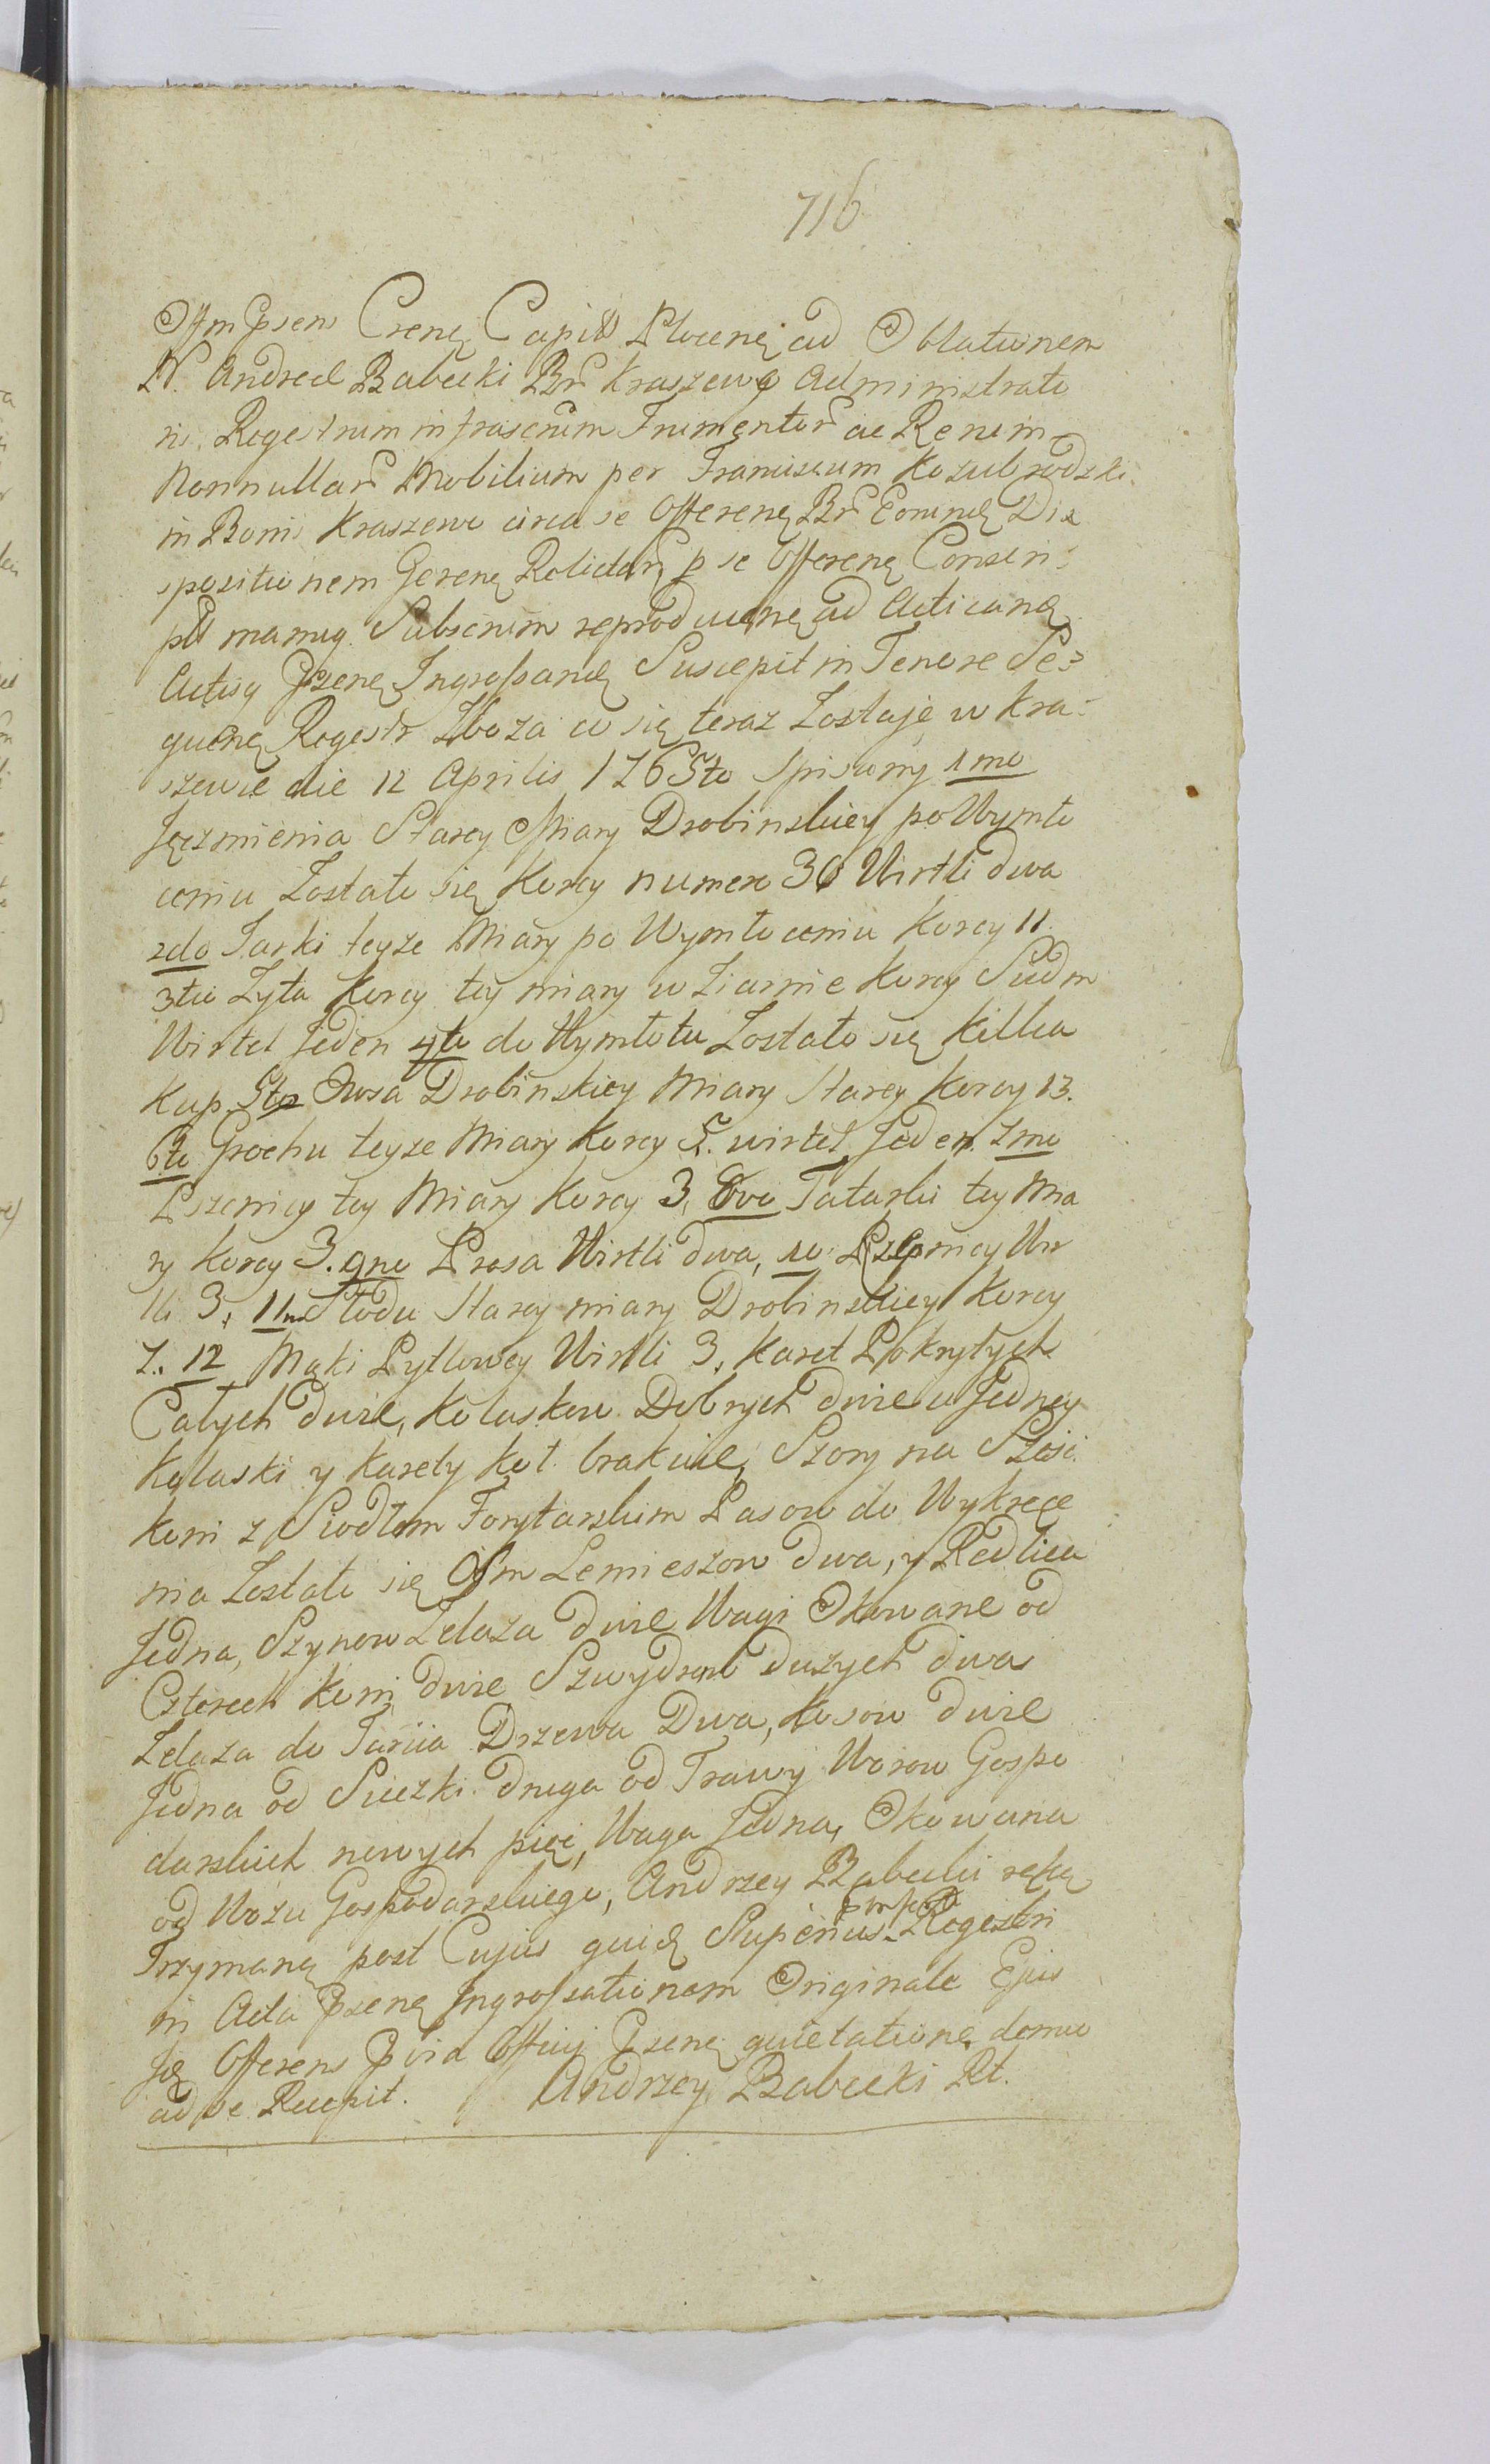 716
Offm Psens Crenę Capitł Plocenę ad Oblationem
N. Andreae Babecki Br̃ Kraszewo Administrato
ris, Regestrum infrascrũm Frumentor̃ ac Rerum
Nonnullar̃ Mobilium per Franciscum Kozubrodzki
in Bonis Kraszewo circa se Offerenę Br̃ Eorundę Dis
positionem Gerenę Relictar̃ p se Offerenę Conscri
ptũ manuq. Subscrũm reproducenę ad Acticandę
Actisq Psenę Ingrossandę Suscepit in Tenore Se=
quenę Regestr Zboza co się teraz Zostaje w Kra=
szewie die 12 Aprilis 1765to Spisany 1mo
Jęczmienia Starey Miary Drobinskiey po Wymło
ceniu Zostało się Korcy numero 30 Wirtli dwa
2do Jarki teyze Miary po Wymłoceniu Korcy 11.
3tio Zyta Korcy tey miary w Ziarnie Korcy Siedm
Wirtel Jeden 4to do Wymłotu Zostało się kilka
Kup. 5to Owsa Drobinskiey Miary Starey Korcy 13.
6to Grochu teyze Miary Korcy 5. wirtel Jeden. 7mo
Pszenicy tey Miary Korcy 3, 8vo Tatarki tey Mia
ry Korcy 3. 9no Prosa Wirtli dwa, 10 Pszenicy Wir
tli 3, 11mo Słodu Starey miary Drobinskiey Korcy
7. 12 Mąki Pytlowey Wirtli 3, Karet Pokrytych
Całych dwie, Kolaskow Dobrych dwie u Jedney
Kolaski y Karety Koł brakuie, Szory na Szesc
Koni z Siodłem Forytarskim Pasow do Wykręce
nia Zostało się Osm Lemieszow dwa, y Redlica
Jedna, Szynow Zelaza dwie Wagi Okowane od
Czterech Koni dwie Szwydrow duzych dwa
Zelaza do Tarcia Drzewa Dwa, Kosow dwie
Jedna od Sieczki druga od Trawy Worow Gospo
darskich nowych pięć, Waga Jedna, Okowana
od Wozu Gospodarskiego, Andrzey Babecki ręką
Trzymaną post Cujus quidę Superius Regestri
in Acta Psenę Ingrossationem Originale Ejus
Offerens Officij Psenę quietationę
ad se Recepit. Andrzey Babecki Rt.